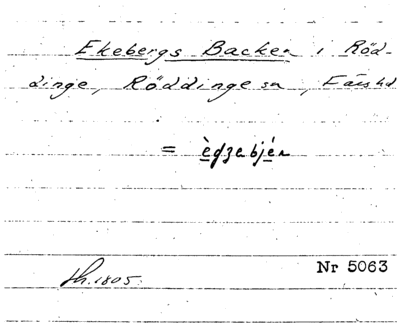 Ekebergs Backen i Röd-
dinge, Röddinge sn, Färs hd
= ègzabjén
Nr 5063
Sh. 1805.